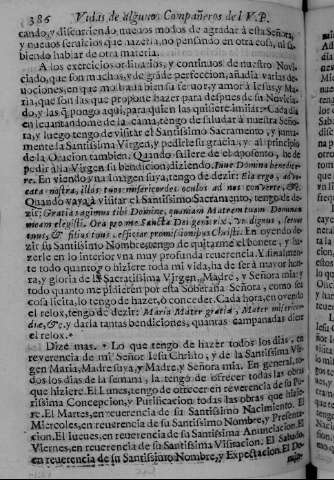 386 Vidas de algunos Compañeros del V.P.
cando, y discurriendo nuevos modos de agradar à esta Señora,
y nuevos servicios que hazerla, no pensando en otra cosa, ni sa-
biendo hablar de otra materia.
A los exercicios ordinarios, y continuos de nuestro Novi-
ciado, que son muchos, y de grãde perfeccion, añadia varias de-
vociones, en que mostraba bien su fervor, y amor à Iesus, y Ma-
ria, que son las que propone hazer para despues de su Novicia-
do, y las q̃ pongo aqui, para quien las quisiere imitar: Cada dia
en levantandome de la cama, tengo de saludar à nuestra Seño-
ra, y luego tengo de visitar el Santissimo Sacramento, y junta-
mente la Santissima Virgen, y pedirle su gracia, y al principio
de la Oracion tambien. Quando saliere del aposento, he de
pedir à la Virgen su bendicion, diziendo, Iube Domina benedice-
re. En viendo una imagen suya, tengo de dezir: Eia ergo, advo-
cata nostra, illos tuos misericordes oculos ad nos converte, &c.
Quando vaya à visitar el Santissimo Sacramento, tengo de de-
zir: Gratias agimus tibi Domine, quoniam Matrem tuam Dominam
meam elegisti. Ora pro me Sancta Dei genitrix, ut dignus, serva
tuus, & filius tuus, efficiar promissionibus Christi. En oyendo de-
zir su Santissimo Nombre, tengo de quitarme el bonete, y ha-
zerle en lo interior una muy profunda reverencia. Y finalmen-
te todo quanto yo hiziere toda mi vida, ha de ser à mayor hon-
ra, y gloria de la Sacratissima Virgen, Madre, y Señora mia: y
todo quanto me pidieren por esta Soberana Señora, como sea
cosa licita, lo tengo de hazer, ò conceder. Cada hora, en oyendo
el relox, tengo de dezir: Maria Mater gratiæ, Mater misericor-
diæ, &c. y darla tantas bendiciones, quantas campanadas diere
el relox.
Dize mas. Lo que tengo de hazer todos los dias, en
reverencia de mi Señor Iesu Christo, y de la Santissima Vir-
gen Maria, Madre suya, y Madre, y Señora mia. En general, to-
dos los dias de la semana, la tengo de ofrecer todas las obras
que hiziere. El Lunes, tengo de ofrecer en reverencia de su Pu-
rissima Concepcion, y Purificacion todas las obras que hizie-
re. El Martes, en reverencia de su Santissimo Nacimiento. El
Miercoles, en reverencia de su Santissimo Nombre, y Presenta-
cion. El Iueves, en reverencia de su Santissima Anunciacion. El
Viernes, en reverencia de su Santissima Visitacion. El Sabado,
en reverencia de su Santissimo Nombre, y Expectacion. El Do-